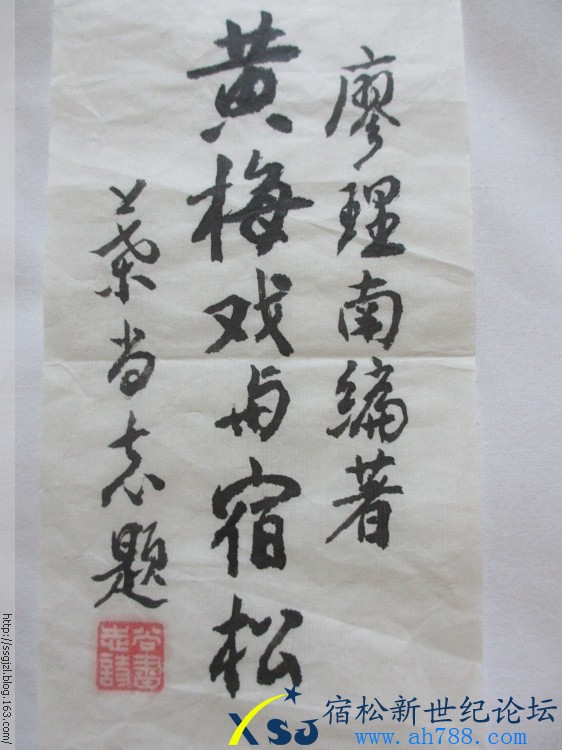 廖理南编著
黄梅戏与宿松
叶尚志题
宿松新世纪论坛
www.ah788.com
XSJ
http://ssgjzl.blog.163.com/